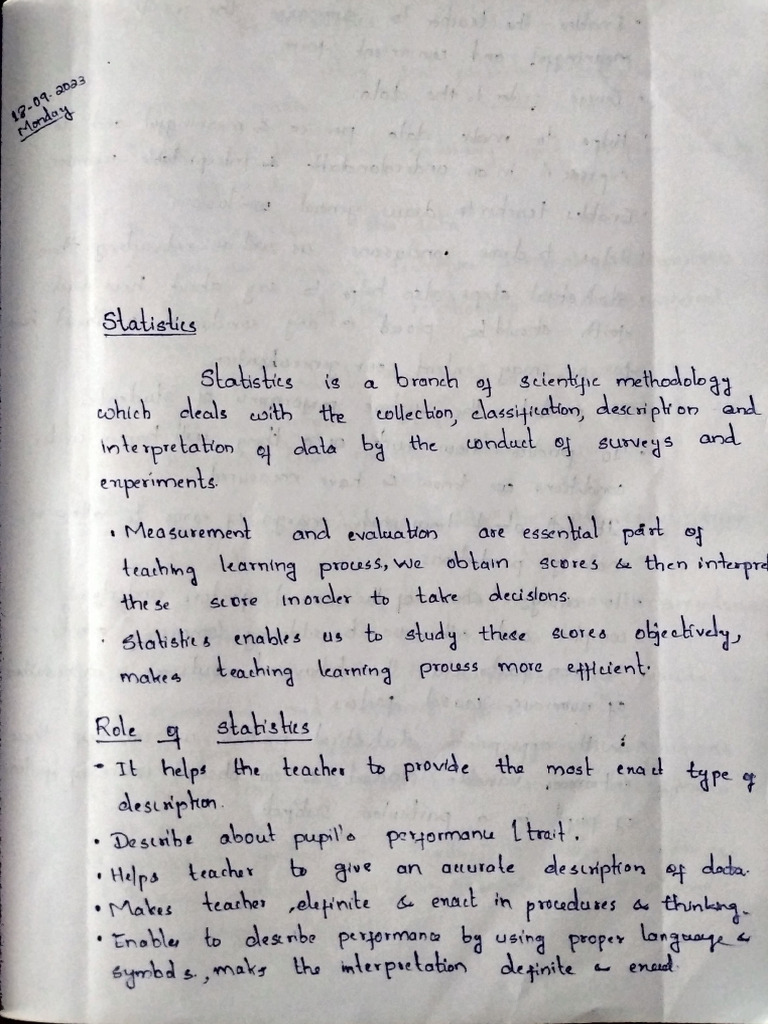 18-09-2023
Monday
Statistics
Statistics is a branch of scientific methodology
which deals with the collection, classification, description and
interpretation of data by the conduct of surveys and
experiments.
• Measurement and evaluation are essential part of
teaching learning process, we obtain scores & then interpre
these score inorder to take decisions.
• Statistics enables us to study these scores objectively,
makes teaching learning process more efficient.
Role of statistics
- It helps the teacher to provide the most exact type of
description.
• Describe about pupil's performance / trait.
• Helps teacher to give an accurate description of data.
• Makes teacher, definite & exact in procedures & thinking.
• Enables to describe performance by using proper language &
symbols., makes the interpretation definite & exact.